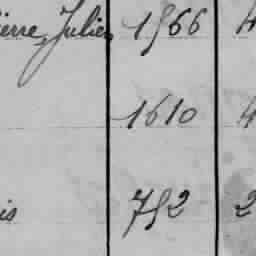 ierre, Julien 1566 4
1610 4
is 752 2